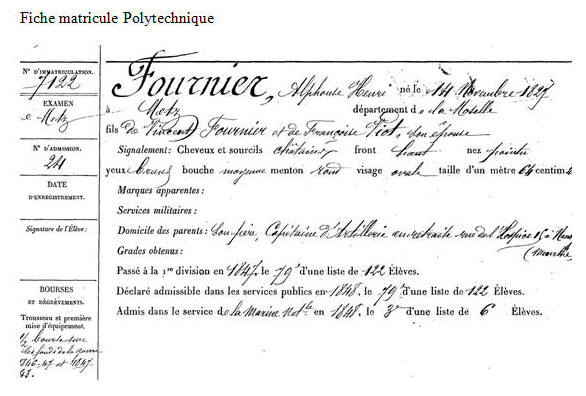 Fiche matricule Polytechnique
N° D'IMMATRICULATION.
7122
EXAMEN
de Metz
N° D'ADMISSION.
24
DATE
D'ENREGISTREMENT.
Signature de l'Élève:
BOURSES
ET DÉGRÈVEMENTS.
Trousseau et première
mise d'équipement.
1/2 bourse sur
les fonds de la guerre
1846-47 et 1847
48.
Fournier, Alphonse Henri né le 14 Novembre 1827
à Metz département de la Moselle
fils de Vincent Fournier et de Françoise Viot, son épouse
Signalement: Cheveux et sourcils châtains front haut nez pointu
yeux bruns bouche moyenne menton rond visage ovale taille d'un mètre 64 centim.
Marques apparentes:
Services militaires:
Domicile des parents: Son père, Capitaine d'Artillerie en retraite rue de l'Hospice 15 à
(Meurthe)
Grades obtenus:
Passé à la 1re division en 1847. le 79e d'une liste de 122 Élèves.
Déclaré admissible dans les services publics en 1848. le 79e d'une liste de 122 Élèves.
Admis dans le service de la Marine Natle en 1848. le 3e d'une liste de 6 Élèves.